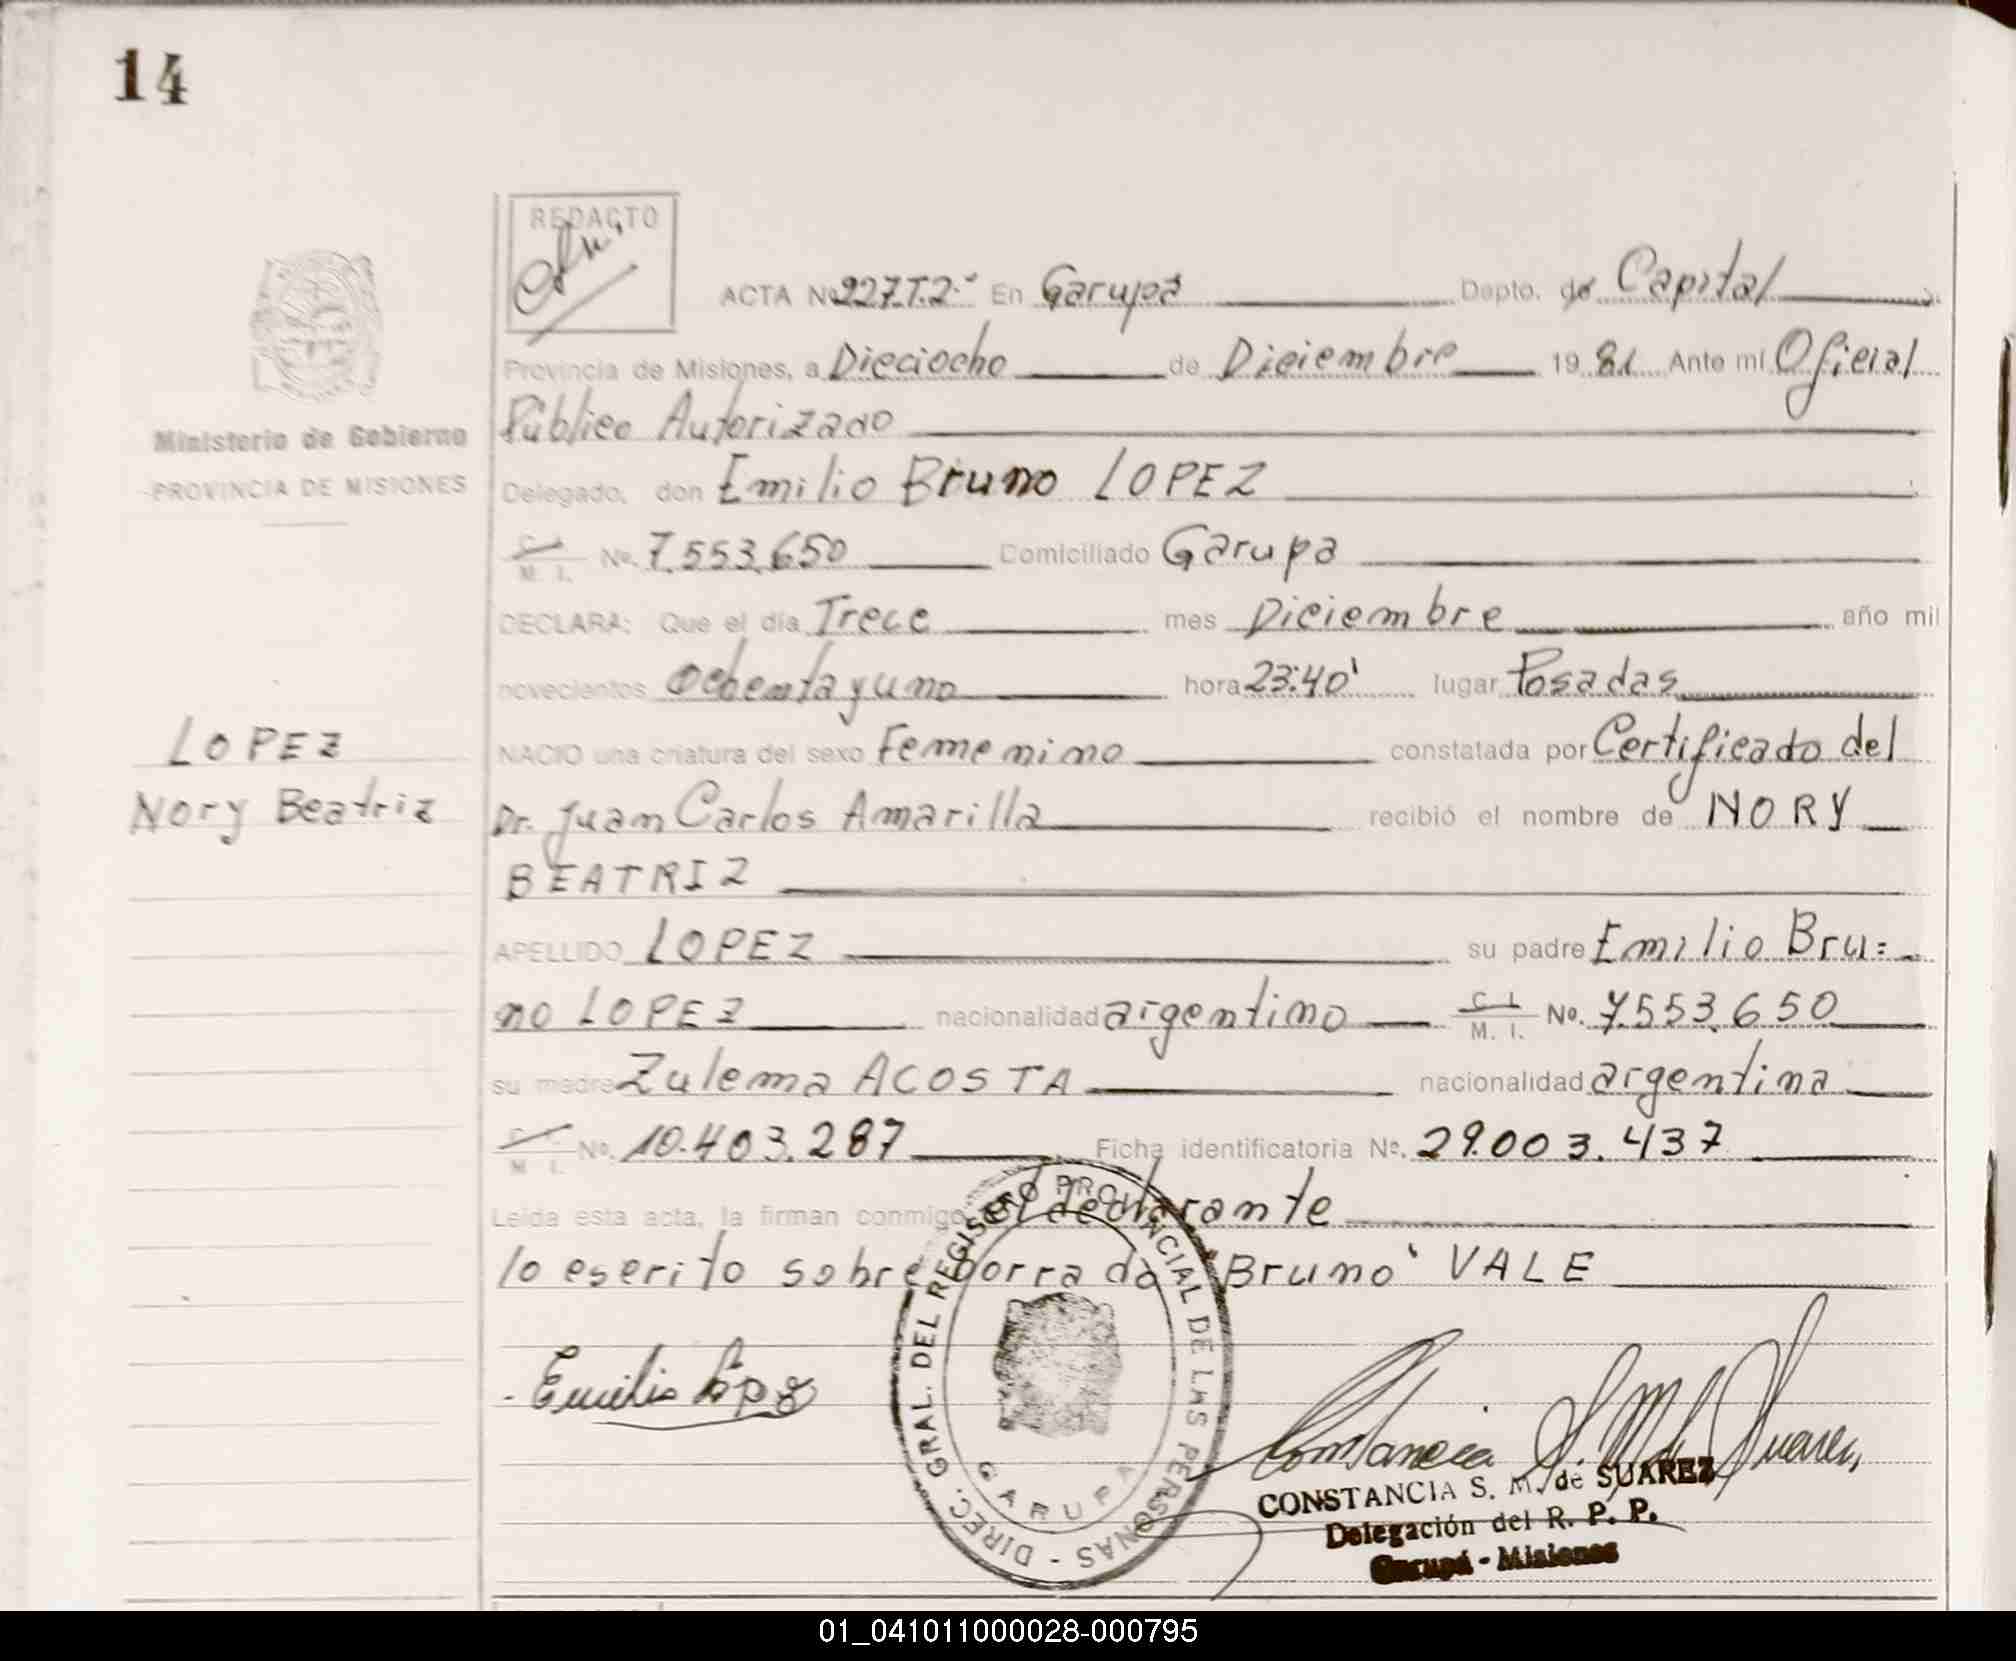 14
REDACTO
ACTA Nº 227.T.2º En Garupá Depto. de Capital
Provincia de Misiones, a Dieciocho de Diciembre 1981 Ante mí Oficial
Público Autorizado
Ministerio de Gobierno
PROVINCIA DE MISIONES
Delegado, don Emilio Bruno LOPEZ
C. I. M. I. No. 7.553.650 Domiciliado Garupa
DECLARA: Que el día Trece mes Diciembre año mil
novecientos Ochenta y uno hora 23:40' lugar Posadas
LOPEZ
Nory Beatriz
NACIO una criatura del sexo Femenino constatada por Certificado del
Dr. Juan Carlos Amarilla recibió el nombre de NORY
BEATRIZ
APELLIDO LOPEZ su padre Emilio Bru=
no LOPEZ nacionalidad argentino C. I. M. I. No. 7.553.650
su madre Zulema ACOSTA nacionalidad argentina
M. I. No. 10.403.287 Ficha identificatoria Nº. 29.003.437
Leída esta acta, la firman conmigo el declarante
lo escrito sobre borrado "Bruno" VALE
Emilio Lopez
DIREC. GRAL. DEL REGISTRO PROVINCIAL DE LAS PERSONAS - GARUPA
Constancia S. M. de Suarez
CONSTANCIA S. M. de SUAREZ
Delegación del R. P. P.
Garupá - Misiones
01_041011000028-000795